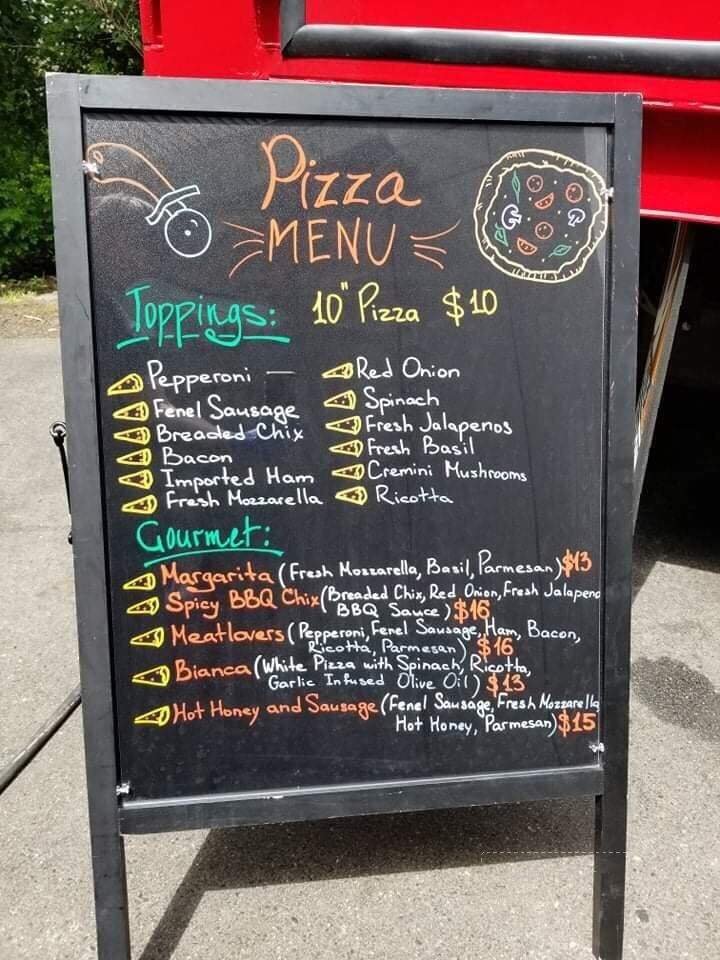 Pizza
MENU
Toppings: 10" Pizza $10
Pepperoni
Fenel Sausage
Breaded Chix
Bacon
Imported Ham
Fresh Mozzarella
Red Onion
Spinach
Fresh Jalapenos
Fresh Basil
Cremini Mushrooms
Ricotta
Gourmet:
Margarita (Fresh Mozzarella, Basil, Parmesan) $13
Spicy BBQ Chix (Breaded Chix, Red Onion, Fresh Jalapeno
BBQ Sauce) $16
Meatlovers (Pepperoni, Fenel Sausage, Ham, Bacon,
Ricotta, Parmesan) $16
Bianca (White Pizza with Spinach, Ricotta,
Garlic Infused Olive Oil) $13
Hot Honey and Sausage (Fenel Sausage, Fresh Mozzarella
Hot Honey, Parmesan) $15